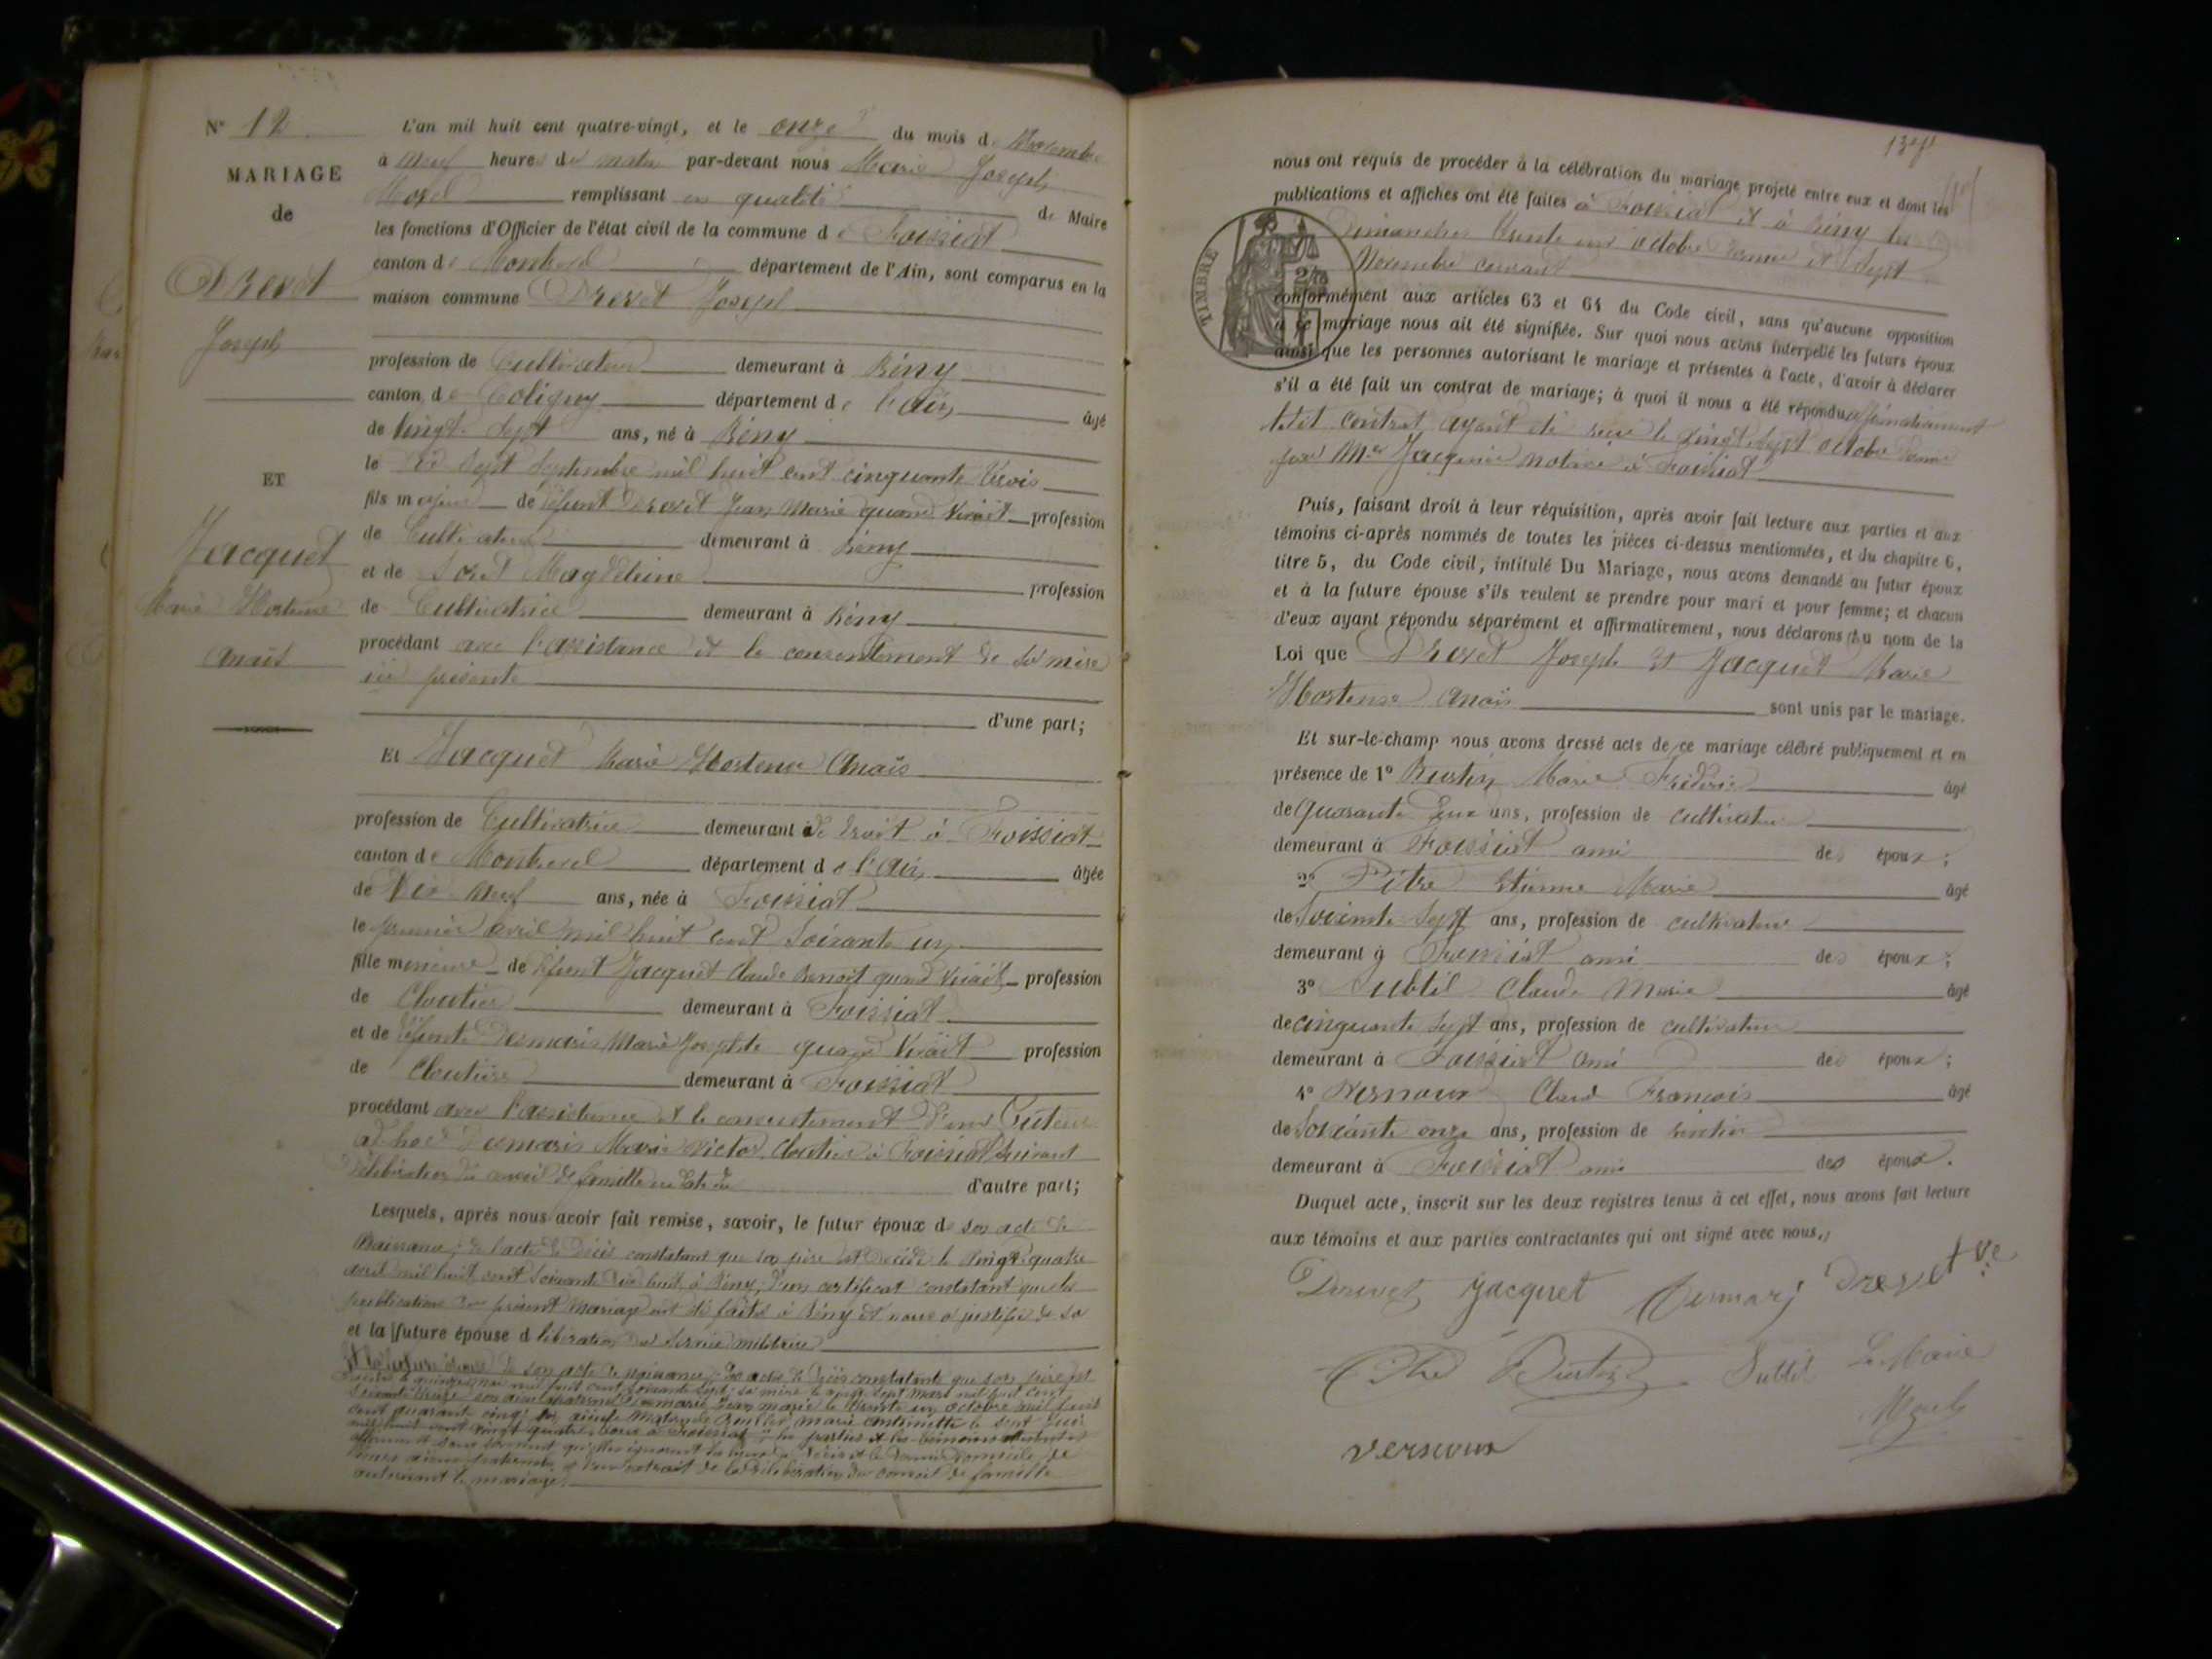 N° 12
MARIAGE
de
Drevet
Joseph
ET
Jacquet
Marie Hortense
Anaïs
L'an mil huit cent quatre-vingt, et le onze du mois de Novembre
à neuf heures du matin par-devant nous Marie Joseph
Morel remplissant en qualité de Maire
les fonctions d'Officier de l'état civil de la commune de Foissiat
canton de Montrevel département de l'Ain, sont comparus en la
maison commune Drevet Joseph
profession de Cultivateur demeurant à Bény
canton de Coligny département de l'ain âgé
de vingt-sept ans, né à Bény
le dix sept septembre mil huit cent cinquante trois
fils majeur de défunt Drevet Jean Marie quand vivait profession
de Cultivateur demeurant à Bény
et de Soret Magdeleine profession
de Cultivatrice demeurant à Bény
procédant avec l'assistance et le consentement de sa mère
ici présente
d'une part;
Et Jacquet Marie Hortense Anaïs
profession de Cultivatrice demeurant de droit à Foissiat
canton de Montrevel département de l'ain âgée
de Dix neuf ans, née à Foissiat
le premier avril mil huit cent soixante un
fille mineure de défunt Jacquet Claude Benoit quand vivait profession
de Cloutier demeurant à Foissiat
et de défunte Desmaris Marie Josephte quand vivait profession
de Cloutière demeurant à Foissiat
procédant avec l'assistance et le consentement d'un Tuteur
ad hoc Desmaris Marie Victor Cloutier à Foissiat suivant
délibération du conseil de famille en date du d'autre part;
Lesquels, après nous avoir fait remise, savoir, le futur époux de son acte de
Naissance; de l'acte de décès constatant que son père est décédé le vingt quatre
avril mil huit cent soixante dix huit à Bény; d'un certificat constatant que les
publications du présent mariage ont été faites à Bény et nous a justifié de sa
et la future épouse d libération du service militaire
Et la future épouse de son acte de naissance; des actes de décès constatant que son père est
décédé le quinze mai mil huit cent soixante sept, sa mère le vingt sept mars mil huit cent
soixante treize son aïeul maternel Desmaris Jean marie le trente un octobre mil huit
cent quarante cinq; son aïeule maternelle marie antoinette le sept juin
mil huit cent vingt quatre, tous à Foissiat; les parties et les témoins
affirment sous serment qu'elles ignorent le lieu du décès et le dernier domicile de
aïeux paternels et d'un extrait de la délibération du conseil de famille
autorisant le mariage.
nous ont requis de procéder à la célébration du mariage projeté entre eux et dont les
publications et affiches ont été faites à Foissiat et à Bény les
Dimanches trente un octobre dernier et sept
Novembre courant
TIMBRE
conformément aux articles 63 et 64 du Code civil, sans qu'aucune opposition
à ce mariage nous ait été signifiée. Sur quoi nous avons interpellé les futurs époux
ainsi que les personnes autorisant le mariage et présentes à l'acte, d'avoir à déclarer
s'il a été fait un contrat de mariage; à quoi il nous a été répondu affirmativement
le dit contrat ayant été reçu le vingt sept octobre dernier
par Me notaire à Foissiat
Puis, faisant droit à leur réquisition, après avoir fait lecture aux parties et aux
témoins ci-après nommés de toutes les pièces ci-dessus mentionnées, et du chapitre 6,
titre 5, du Code civil, intitulé Du Mariage, nous avons demandé au futur époux
et à la future épouse s'ils veulent se prendre pour mari et pour femme; et chacun
d'eux ayant répondu séparément et affirmativement, nous déclarons au nom de la
Loi que Drevet Joseph et Jacquet Marie
Hortense Anaïs sont unis par le mariage.
Et sur-le-champ nous avons dressé acte de ce mariage célébré publiquement et en
présence de 1° Marie Frédéric âgé
de quarante deux ans, profession de cultivateur
demeurant à Foissiat ami des époux;
2° Pitre Etienne Marie âgé
de soixante sept ans, profession de cultivateur
demeurant à Foissiat ami des époux;
3° Subtil Claude Marie âgé
de cinquante sept ans, profession de cultivateur
demeurant à Foissiat ami des époux;
4° Vernoux Claude François âgé
de soixante onze ans, profession de rentier
demeurant à Foissiat ami des époux.
Duquel acte, inscrit sur les deux registres tenus à cet effet, nous avons fait lecture
aux témoins et aux parties contractantes qui ont signé avec nous.
Drevet Jacquet Demarj Drevet Ve
Subtil Le Maire
Morel
vernoux